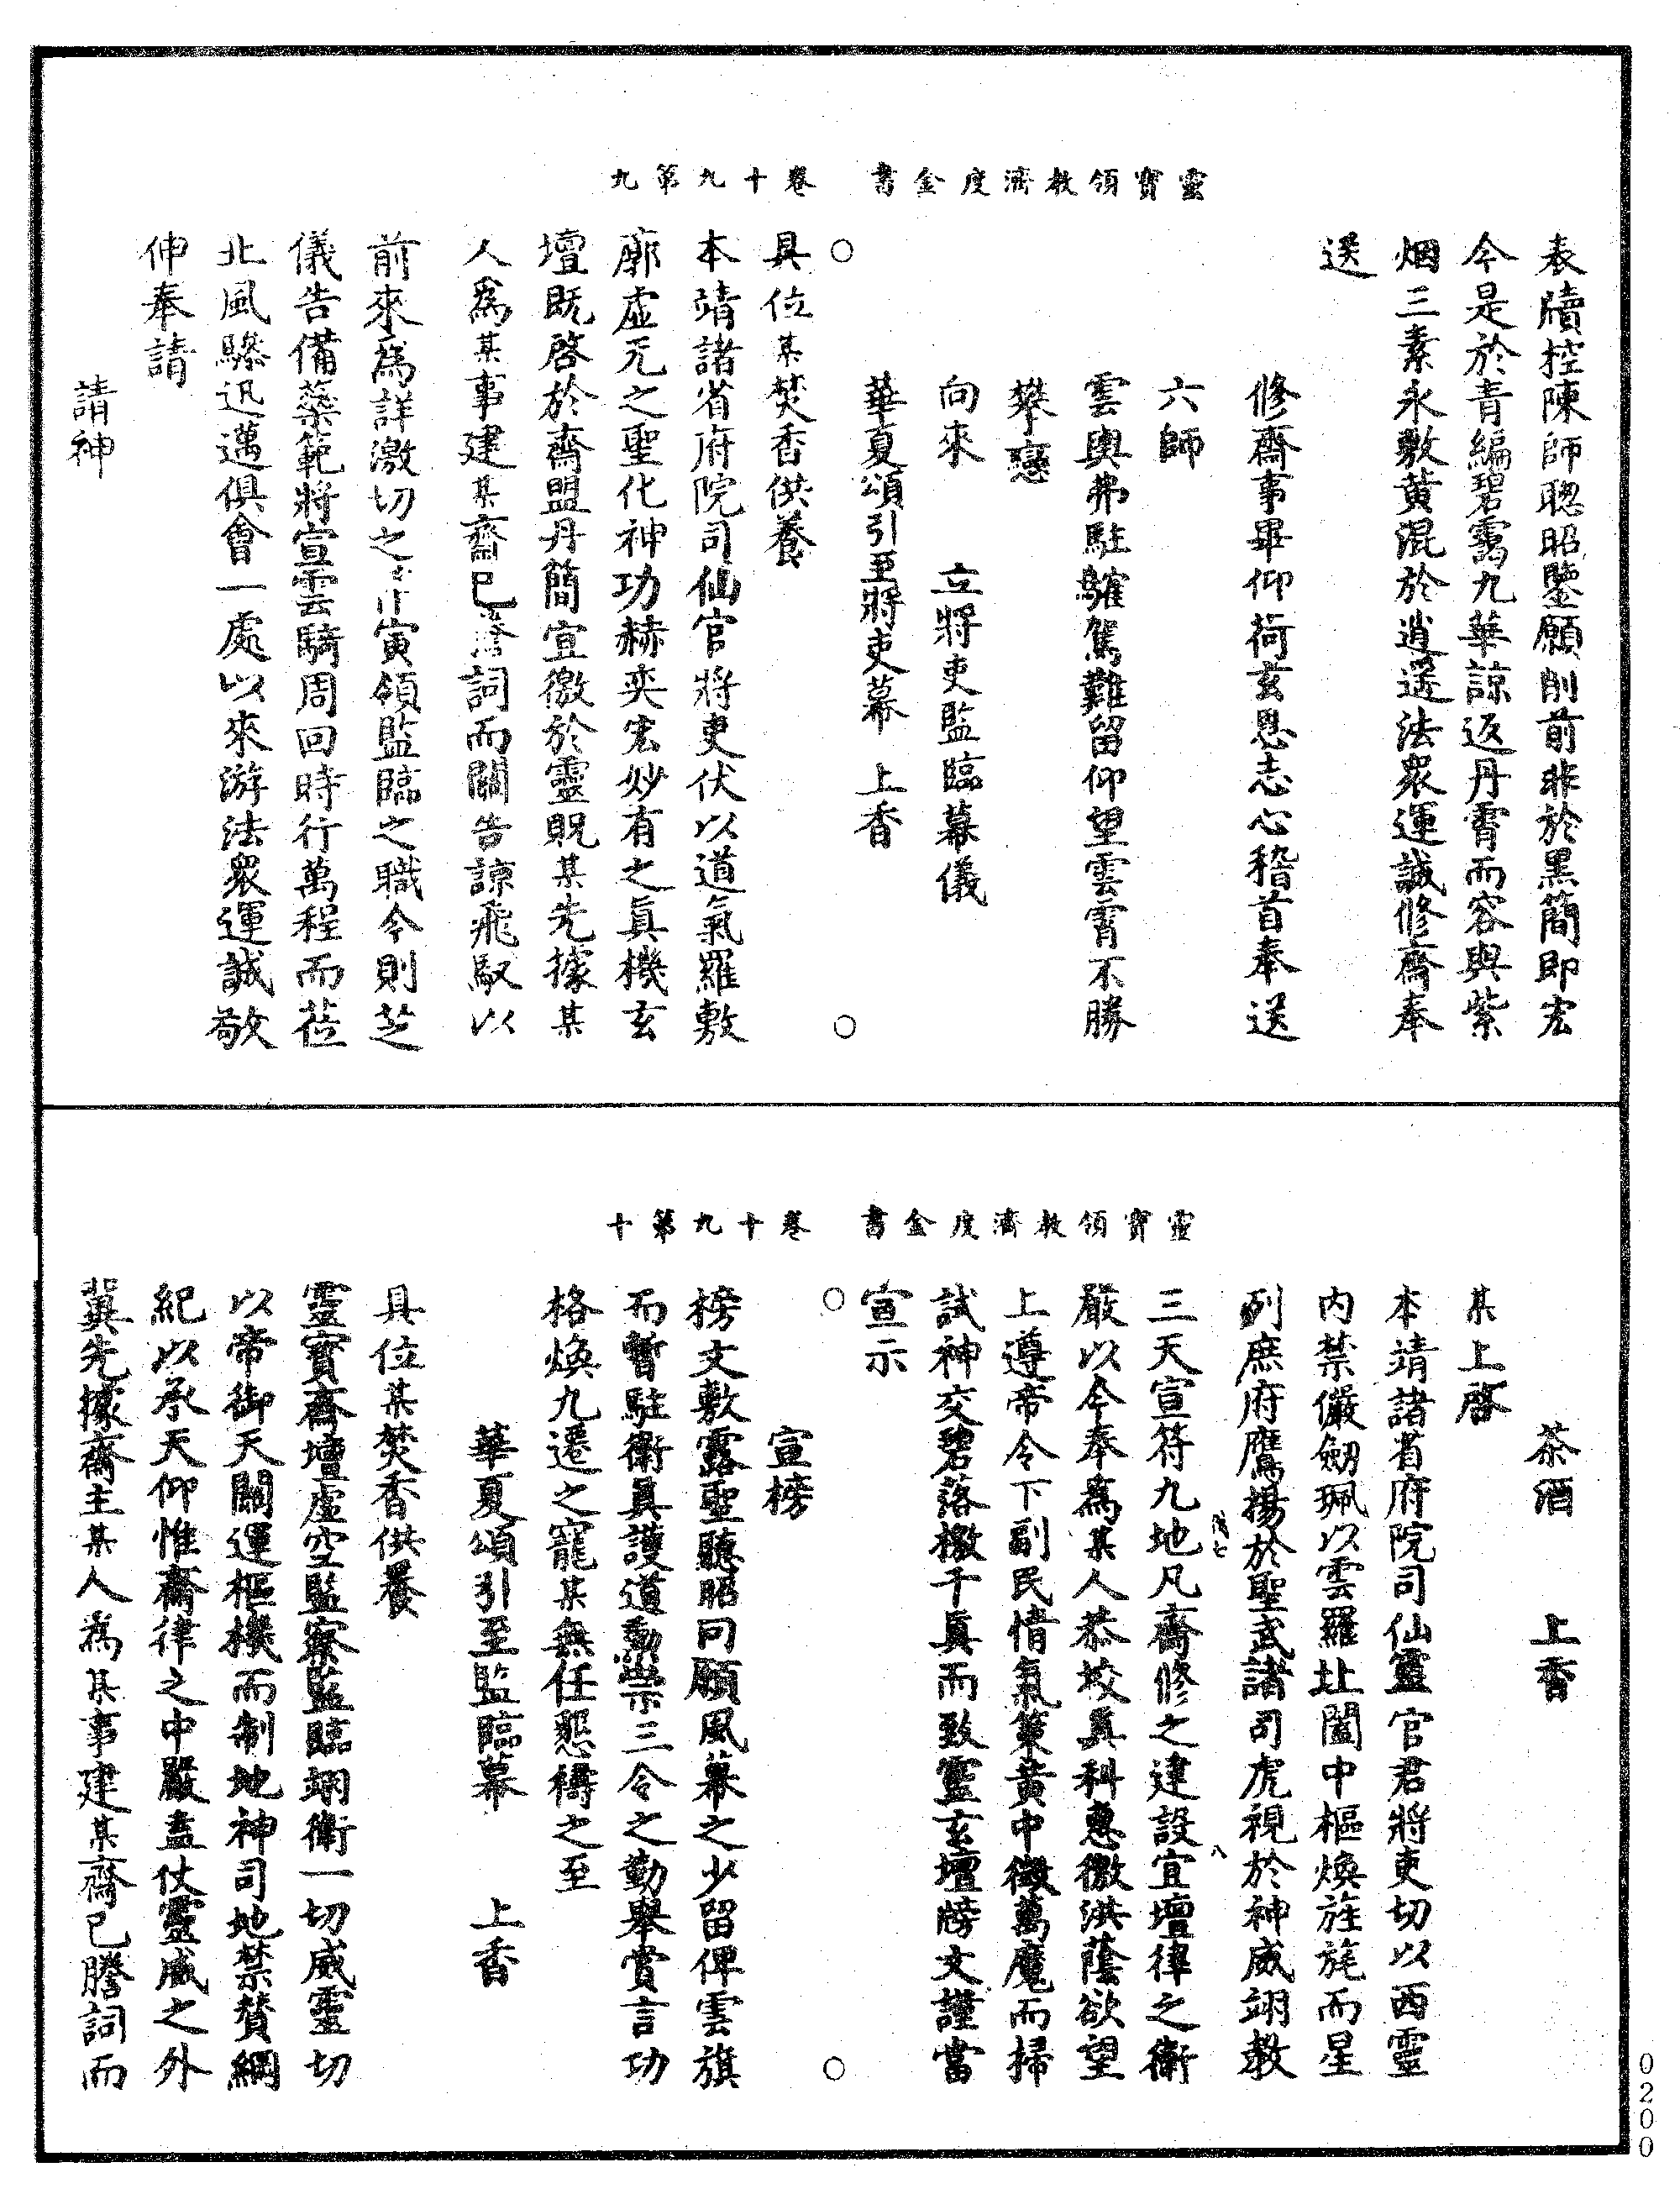 靈寶領教濟度金書　卷十九第九
表牘控陳師聰昭鑒願削前非於黑簡即宏
今是於青編碧靄九華諒返丹霄而容與紫
烟三素永敷黄混於逍遥法衆運誠修齋奉
送
修齋事畢仰荷玄恩志心稽首奉送
六師
雲輿弗駐騅駕難留仰望雲霄不勝
攀戀
向來　立將吏監臨幕儀
華夏頌引至將吏幕　上香
具位某焚香供養
本靖諸省府院司仙官將吏伏以道氣羅敷
廓虚无之聖化神功赫奕宏妙有之眞機玄
壇既啓於齋盟丹簡宜徼於靈貺某先據某
人爲某事建某齋已謄詞而關告諒飛馭以
前來爲詳激切之寅領監臨之職今則芝
儀告備蘂範將宣雲騎周回時行萬程而莅
北風驂迅邁俱會一處以來游法衆運誠敬
伸奉請
請神
靈寶領教濟度金書　卷十九第十
茶酒　上香
某上啓
本靖諸省府院司仙靈官君將吏切以西靈
内禁儼劒珮以雲羅北闔中樞煥旌旄而星
列庶府鷹揚於聖武諸司虎視於神威翊教
三天宣符九地凡齋修之建設宜壇律之衛
嚴以今奉爲某人恭按眞科專徼洪蔭欲望
上遵帝令下副民情氣策黄中徵萬魔而掃
試神交碧落檄千眞而致靈玄壇牓文謹當
宣示
宣榜
榜文敷露聖聽昭回願風幕之少留俾雲旗
而暫駐衛眞護道勳崇三令之勤舉賞言功
格煥九遷之寵某無任懇禱之至
華夏頌引至監臨幕　上香
具位某焚香供養
靈寶齋壇虛空監察監臨翊衛一切威靈切
以帝御天關運樞機而制地神司地禁贊綱
紀以承天仰惟齋律之中嚴盍仗靈威之外
冀先據齋主某人爲某事建某齋已謄詞而
0200